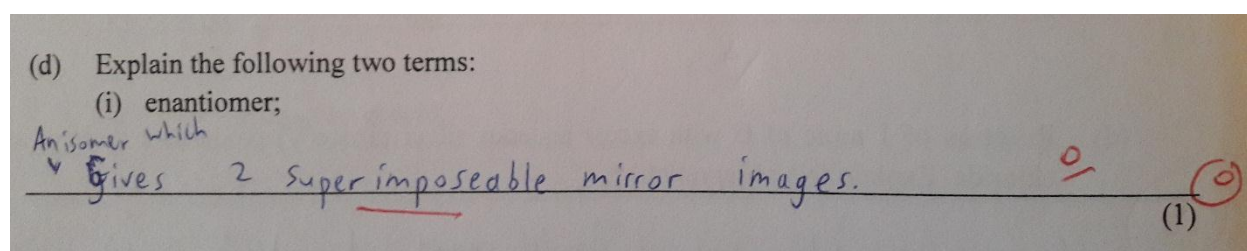 (d) Explain the following two terms:
(i) enantiomer;
An isomer which
Gives 2 superimposeable mirror images.
0
0
(1)